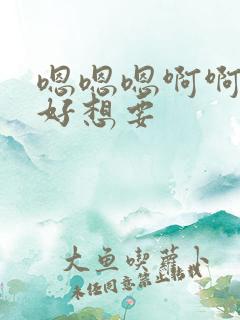 嗯嗯嗯啊啊
好想要
大鱼喫萝卜
未经同意禁止转载